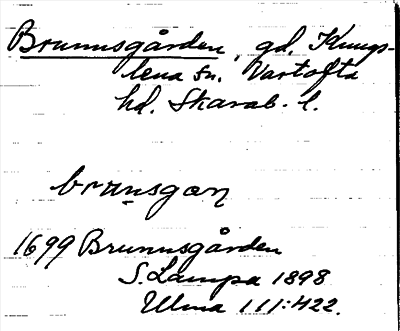 Brunnsgården, gd, Kungs-
lena sn. Vartofta
hd. Skarab. l.
brunsgan
1699 Brunnsgården
S. Lampa 1898
Ulma 111:422.